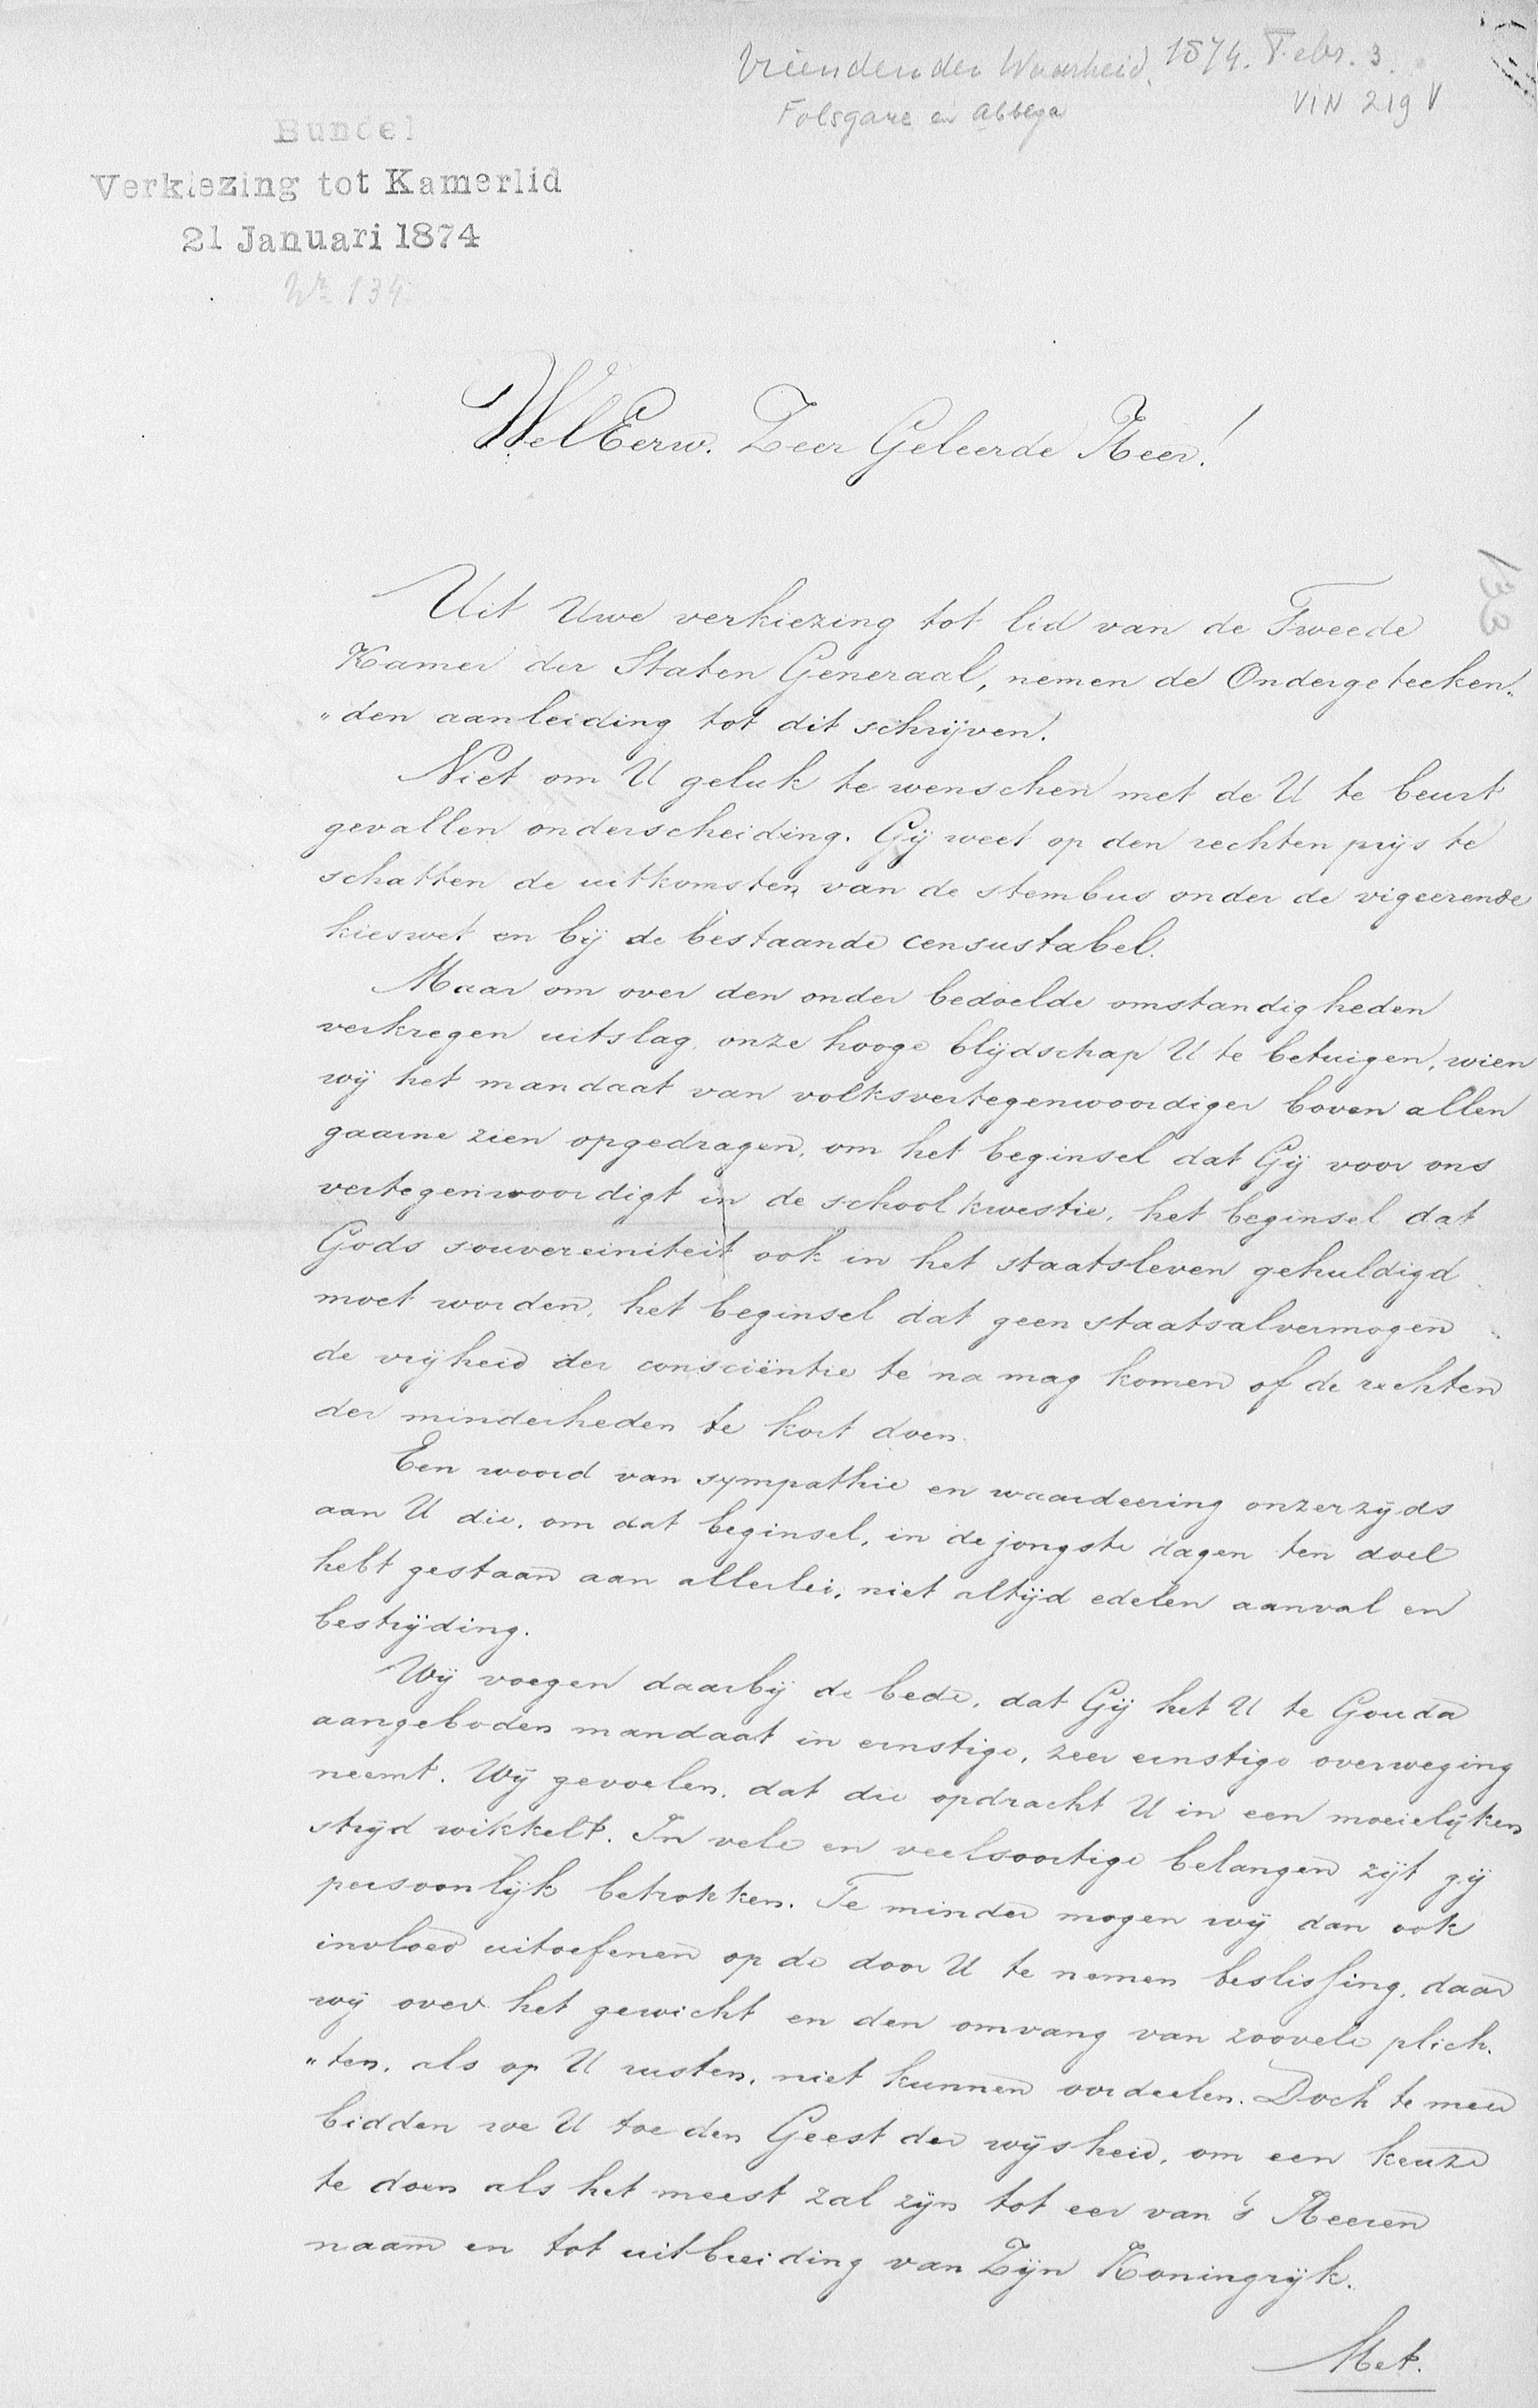 Vrienden der Waarheid. 1874. Febr. 3.
Folsgare en Abbega
VIN 219 V
Bundel
Verkiezing tot Kamerlid
21 Januari 1874
No 134
133
WelEerw. Zeer Geleerde Heer!
Uit Uwe verkiezing tot lid van de Tweede
Kamer der Staten Generaal, nemen de Ondergeteeken„
„den aanleiding tot dit schrijven.
Niet om U geluk te wenschen met de U te beurt
gevallen onderscheiding. Gij weet op den rechten prijs te
schatten de uitkomsten van de stembus onder de vigeerende
kieswet en bij de bestaande censustabel.
Maar om over den onder bedoelde omstandigheden
verkregen uitslag, onze hooge blijdschap U te betuigen, wien
wij het mandaat van volksvertegenwoordiger boven allen
gaarne zien opgedragen, om het beginsel dat Gij voor ons
vertegenwoordigt in de schoolkwestie, het beginsel dat
Gods souvereiniteit ook in het staatsleven gehuldigd
moet worden, het beginsel dat geen staatsalvermogen
de vrijheid der consciëntie te na mag komen of de rechten
der minderheden te kort doen.
Een woord van sympathie en waardeering onzerzijds
aan U die, om dat beginsel, in de jongste dagen ten doel
hebt gestaan aan allerlei, niet altijd edelen aanval en
bestrijding.
Wij voegen daarbij de bede, dat Gij het U te Gouda
aangeboden mandaat in ernstige, zeer ernstige overweging
neemt. Wij gevoelen, dat die opdracht U in een moeielijken
strijd wikkelt. In vele en veelsoortige belangen zijt gij
persoonlijk betrokken. Te minder mogen wij dan ook
invloed uitoefenen op de door U te nemen beslissing, daar
wij over het gewicht en den omvang van zoovele plich„
„ten, als op U rusten, niet kunnen oordeelen. Doch te meer
bidden we U toe den Geest der wijsheid, om een keuze
te doen als het meest zal zijn tot eer van 's Heeren
naam en tot uitbreiding van Zijn Koningrijk.
Met.